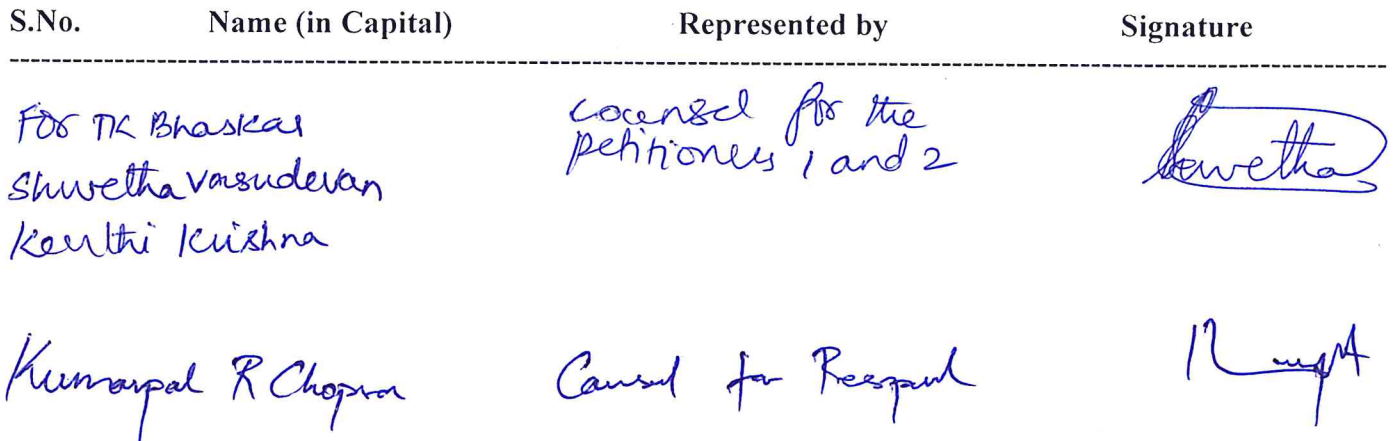 S.No. Name (in Capital) Represented by Signature
For TK Bhaskar
Shwetha Vasudevan
Keerthi Krishna
counsel for the
petitioners 1 and 2
Swetha
Kumarpal R Chopra
Counsel for